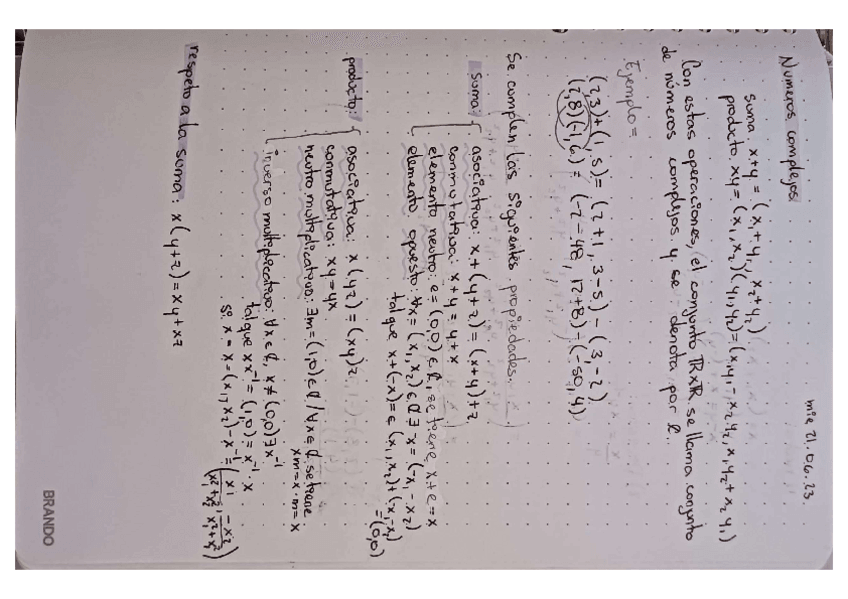 mie 21.06.23.
Números complejos
suma: x+y = (x₁+y₁, x₂+y₂)
producto: xy = (x₁,x₂)(y₁,y₂) = (x₁y₁ - x₂y₂, x₁y₂ + x₂y₁)
Con estas operaciones, el conjunto ℝxℝ se llama conjunto
de números complejos y se denota por ℂ.
Ejemplo =
(2,3)+(1,5) = (2+1, 3-5) - (3-2)
(2,8)(-1,6) = (-2-48, 12+8) - (-50,4)
Se cumplen las siguientes propiedades.
suma: { asociativa: x+(y+z) = (x+y)+z
conmutativa: x+y = y+x
elemento neutro: e = (0,0) ∈ ℂ, se tiene x+e = x
elemento opuesto: ∀x = (x₁,x₂) ∈ ℂ ∃ -x = (-x₁-x₂)
tal que x+(-x) = e (x₁,x₂)+(-x₁-x₂)
= (0,0)
producto: { asociativa: x(yz) = (xy)z
conmutativa: xy = yx
neutro multiplicativo: ∃m = (1,0) ∈ ℂ / ∀x ∈ ℂ se tiene
xm = x · m = x
inverso multiplicativo: ∀x ∈ ℂ, x ≠ (0,0) ∃ x⁻¹
tal que xx⁻¹ = (1,0) = x⁻¹ · x
si x = x = (x₁,x₂) - x⁻¹ = (x₁/(x₁²+x₂²), -x₂/(x₁²+x₂²))
respeto a la suma: x(y+z) = xy+xz
BRANDO